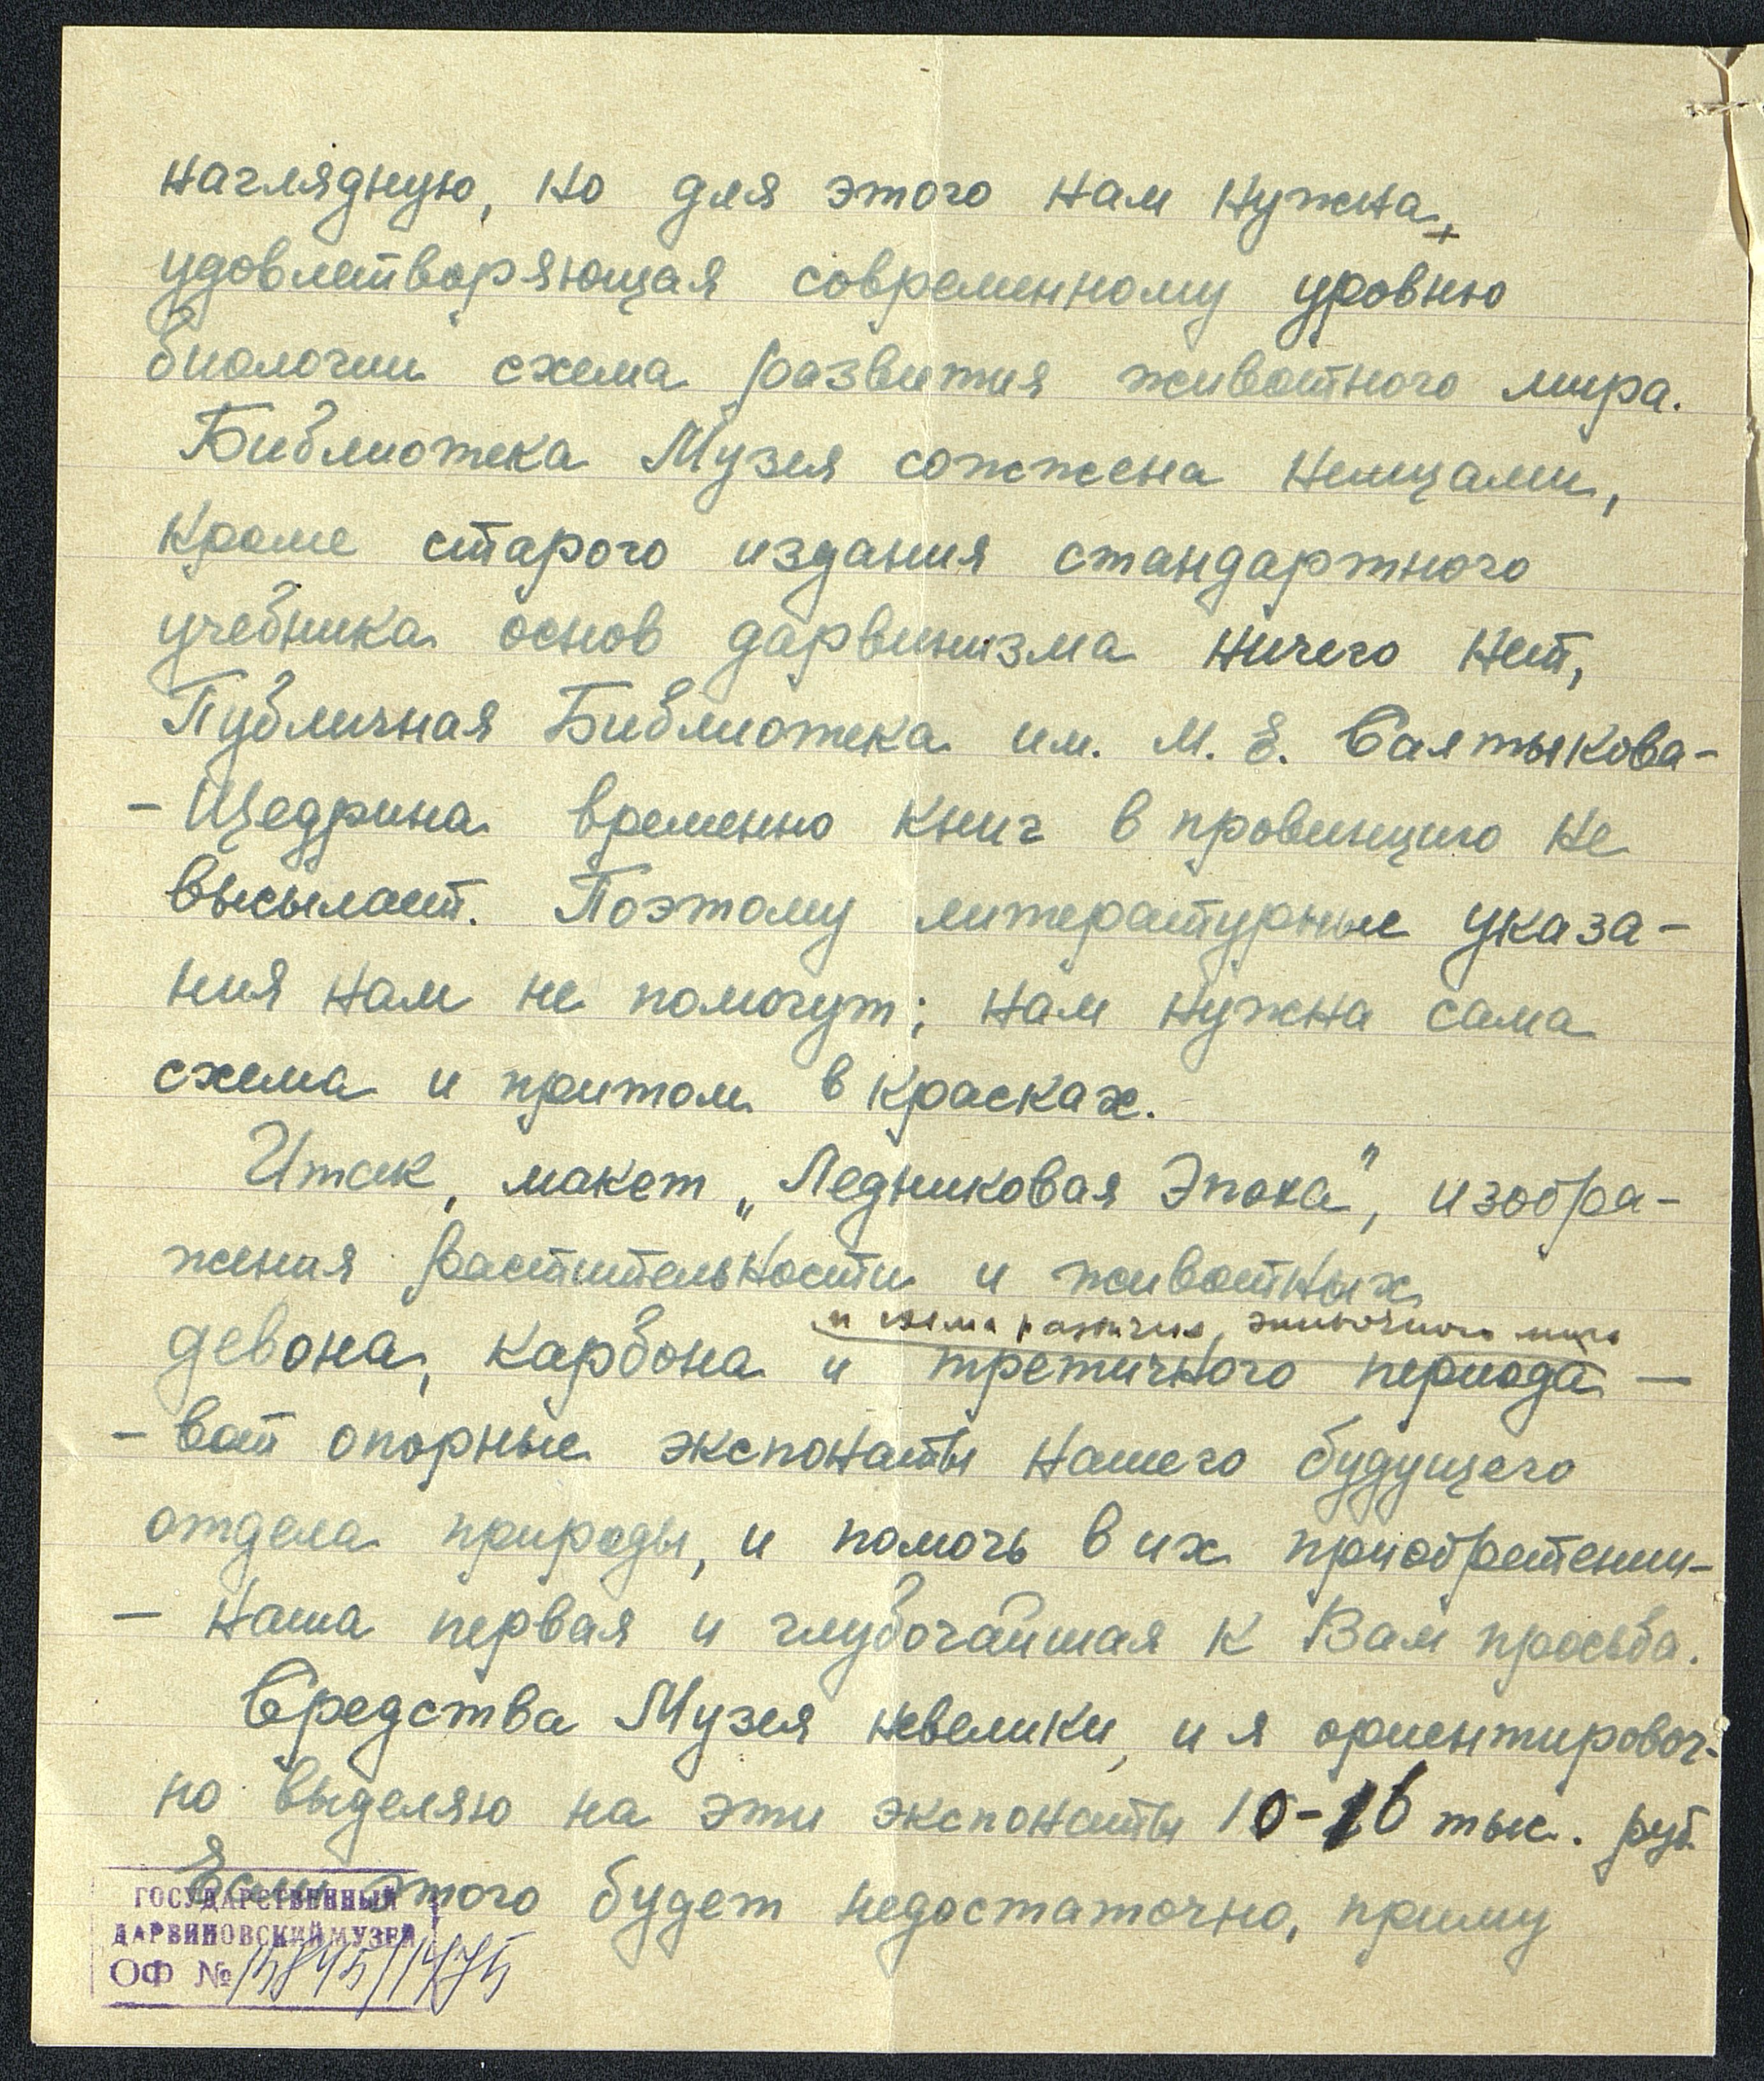 наглядную, но для этого нам нужна,
удовлетворяющая современному уровню
биологии схема развития животного мира.
Библиотека Музея сожжена немцами,
кроме старого издания стандартного
учебника основ дарвинизма ничего нет,
Публичная Библиотека им. М. Е. Салтыкова-
- Щедрина временно книг в провинцию не
высылает. Поэтому литературные указа-
ния нам не помогут; нам нужна сама
схема и притом в красках.
Итак, макет „Ледниковая Эпоха", изобра-
жения растительности и животных
и схема развития животного мира
девона, карбона и третичного периода —
- вот опорные экспонаты нашего будущего
отдела природы, и помочь в их приобретении-
- наша первая и глубочайшая к Вам просьба.
Средства Музея невелики, и я ориентировоч-
но выделяю на эти экспонаты 10-16 тыс. руб.
Если этого будет недостаточно, приму
ГОСУДАРСТВЕННЫЙ
ДАРВИНОВСКИЙ МУЗЕЙ
ОФ №